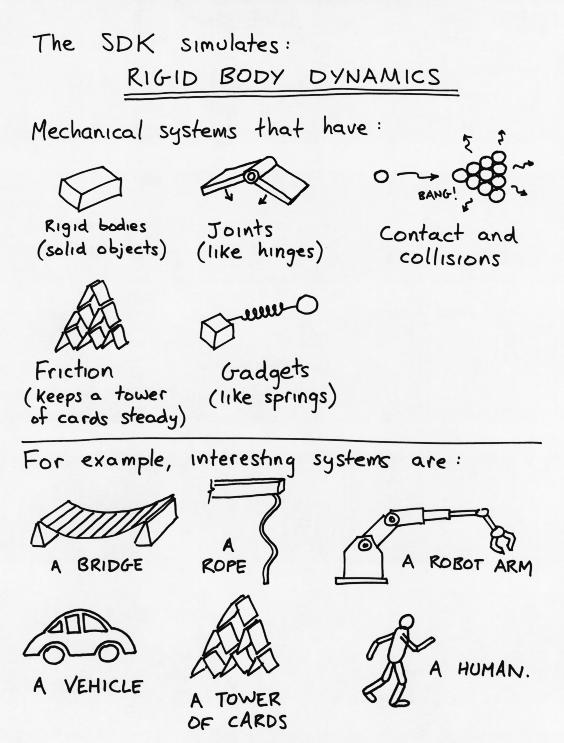 The SDK simulates:
RIGID BODY DYNAMICS
Mechanical systems that have:
Rigid bodies
(solid objects)
Joints
(like hinges)
BANG!
Contact and
collisions
Friction
(keeps a tower
of cards steady)
Gadgets
(like springs)
For example, interesting systems are:
A BRIDGE
A
ROPE
A ROBOT ARM
A VEHICLE
A TOWER
OF CARDS
A HUMAN.